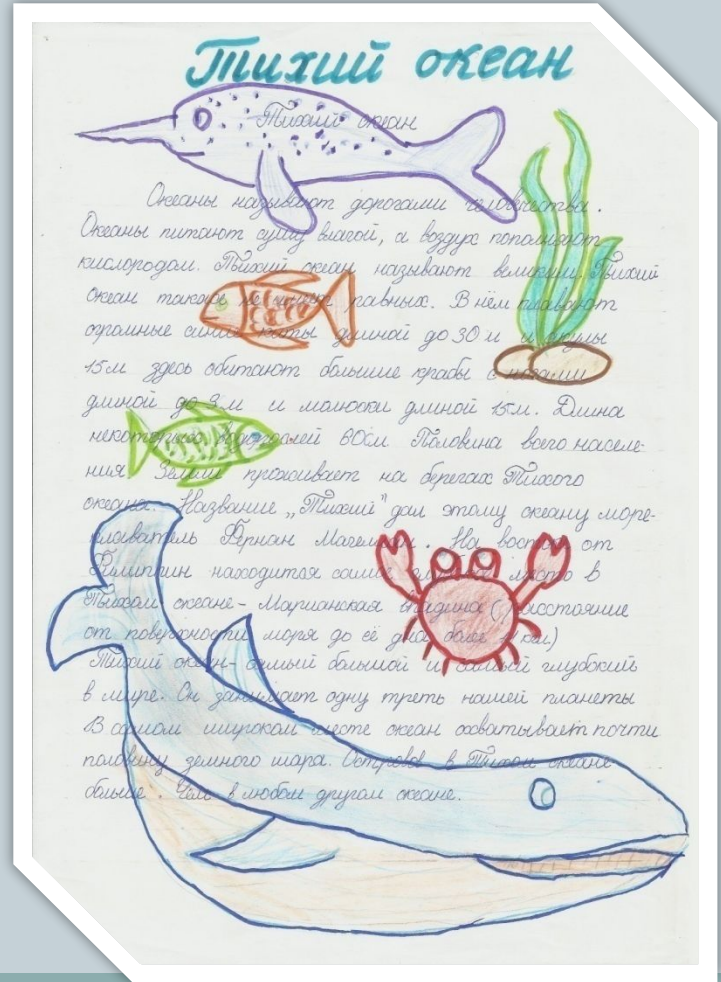 Тихий океан
Тихий океан
Океаны называют дорогами человечества.
Океаны питают сушу влагой, а воздух пополняют
кислородом. Тихий океан называют великим. Тихий
океан также не имеет равных. В нём плавают
огромные синие киты длиной до 30 м и акулы
15м здесь обитают большие крабы с ногами
длиной до 3м и молюски длиной 15м. Длина
некоторых водорослей 60см Половина всего населе-
ния Земли проживает на берегах Тихого
океана. Название „Тихий" дал этому океану море-
плаватель Фернан Магеллан. На восток от
Филиппин находится самое глубокое место в
Тихом океане - Марианская впадина (расстояние
от поверхности моря до её дна более км)
Тихий океан - самый большой и самый глубокий
в мире. Он занимает одну треть нашей планеты
В самом широком месте океан охватывает почти
половину земного шара. Островов в Тихом океане
больше. Чем в любом другом океане.